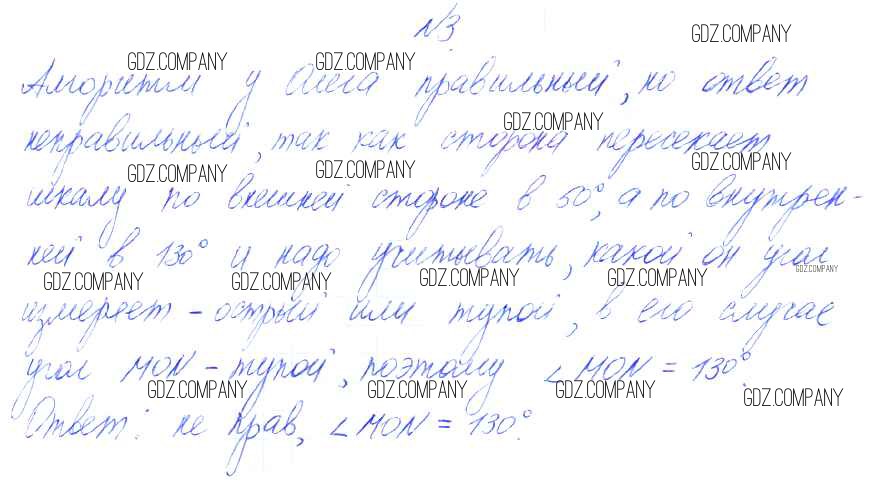 №3
GDZ.COMPANY
GDZ.COMPANY GDZ.COMPANY
Алгоритм у Олега правильный, но ответ
GDZ.COMPANY
неправильный, так как сторона пересекает
GDZ.COMPANY GDZ.COMPANY GDZ.COMPANY
шкалу по внешней стороне в 50°, а по внутрен-
ней в 130° и надо учитывать, какой он угол
GDZ.COMPANY GDZ.COMPANY GDZ.COMPANY GDZ.COMPANY GDZ.COMPANY
измеряет - острый или тупой, в его случае
угол MON - тупой, поэтому ∠MON = 130°.
GDZ.COMPANY GDZ.COMPANY GDZ.COMPANY GDZ.COMPANY
Ответ: не прав, ∠MON = 130°.